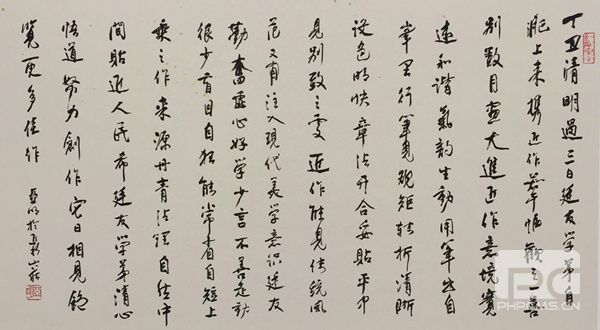 丁丑清明過三日廷友学弟自
肥上来携近作若干幅觀之喜
别数月画大進近作意境寬
遠和谐氣韵生動用筆出自
峯里行筆見规矩转折清晰
設色明快章法开合妥贴平中
見别致之变近作能見传统風
范又有注入現代美学意识廷友
勤奮虚心好学少言不善走动
很少盲目自狂能常看自短上
乘之作来源丹青法铎自然中
間贴近人民希廷友学弟清心
悟道努力創作它日相見飽
覧更多佳作
亚明於
PHPCMS.CN